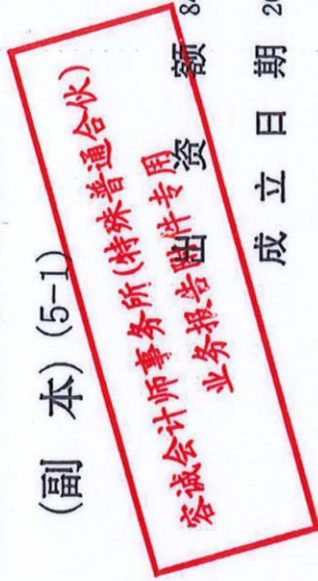 (副 本) (5-1)
容诚会计师事务所(特殊普通合伙)
业务报告附件专用
出 资 额 8
成 立 日 期 20